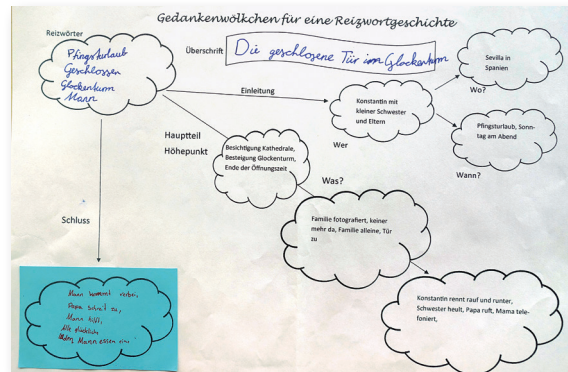 Gedankenwölkchen für eine Reizwortgeschichte
Reizwörter
Pfingsturlaub
Geschlossen
Glockenturm
Mann
Überschrift
Die geschlossene Tür im Glockenturm
Einleitung
Konstantin mit
kleiner Schwester
und Eltern
Wer
Sevilla in
Spanien
Wo?
Pfingsturlaub, Sonn-
tag am Abend
Wann?
Hauptteil
Höhepunkt
Besichtigung Kathedrale,
Besteigung Glockenturm,
Ende der Öffnungszeit
Was?
Familie fotografiert, keiner
mehr da, Familie alleine, Tür
zu
Konstantin rennt rauf und runter,
Schwester heult, Papa ruft, Mama tele-
foniert,
Schluss
Mann kommt vorbei,
Papa schreit zu,
Mann hilft,
Alle glücklich
Mann essen ein